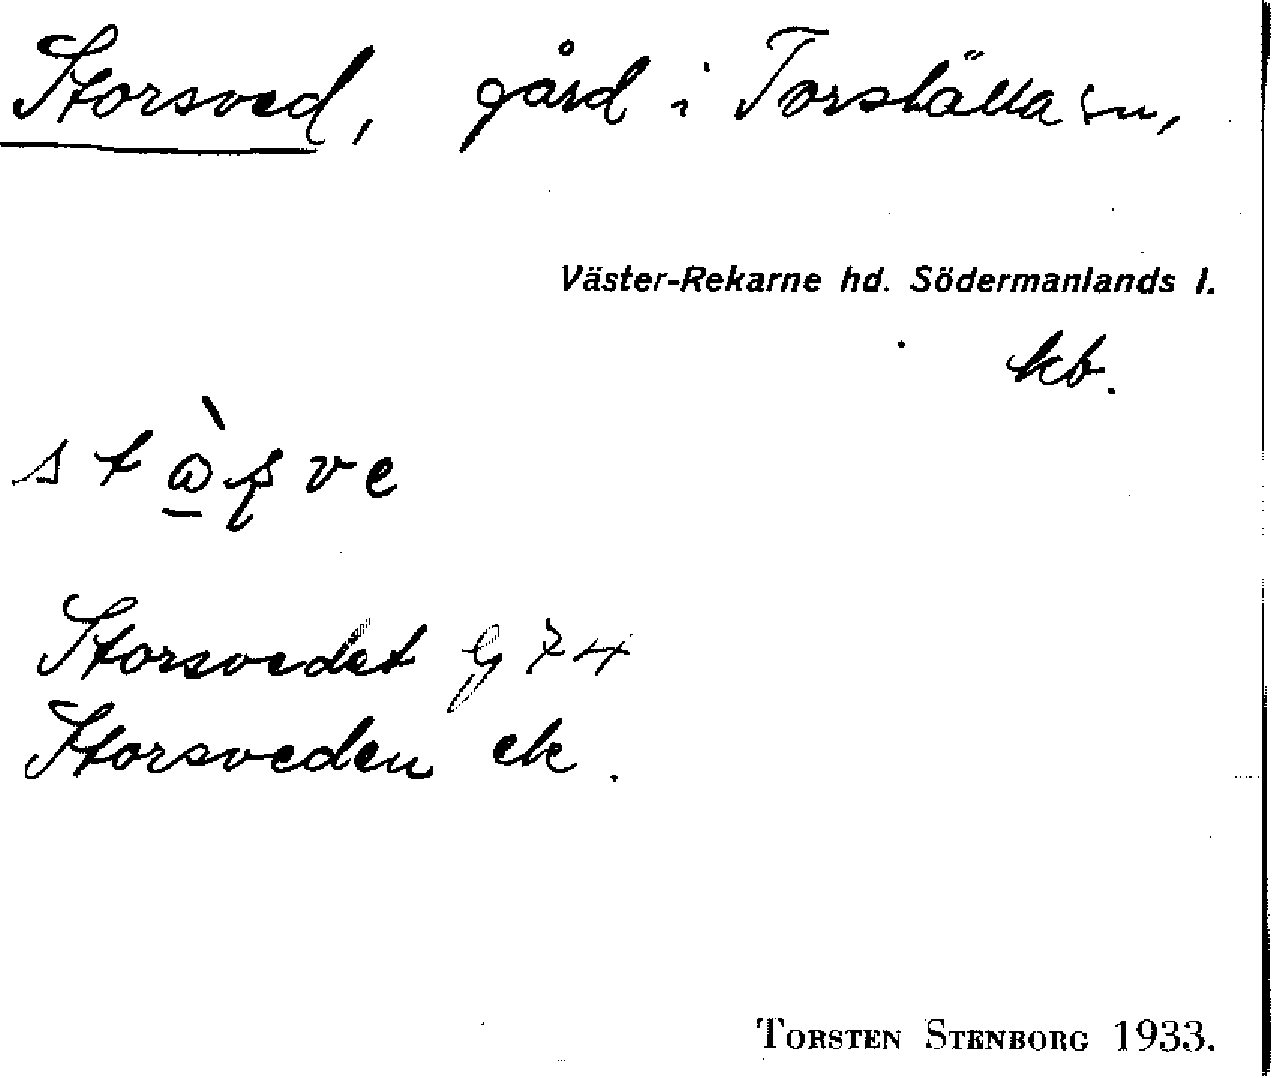 Storsved, gård i Torshälla sn,
Väster-Rekarne hd. Södermanlands l.
kb.
Storsvedet G 74
Storsveden ek.
TORSTEN STENBORG 1933.